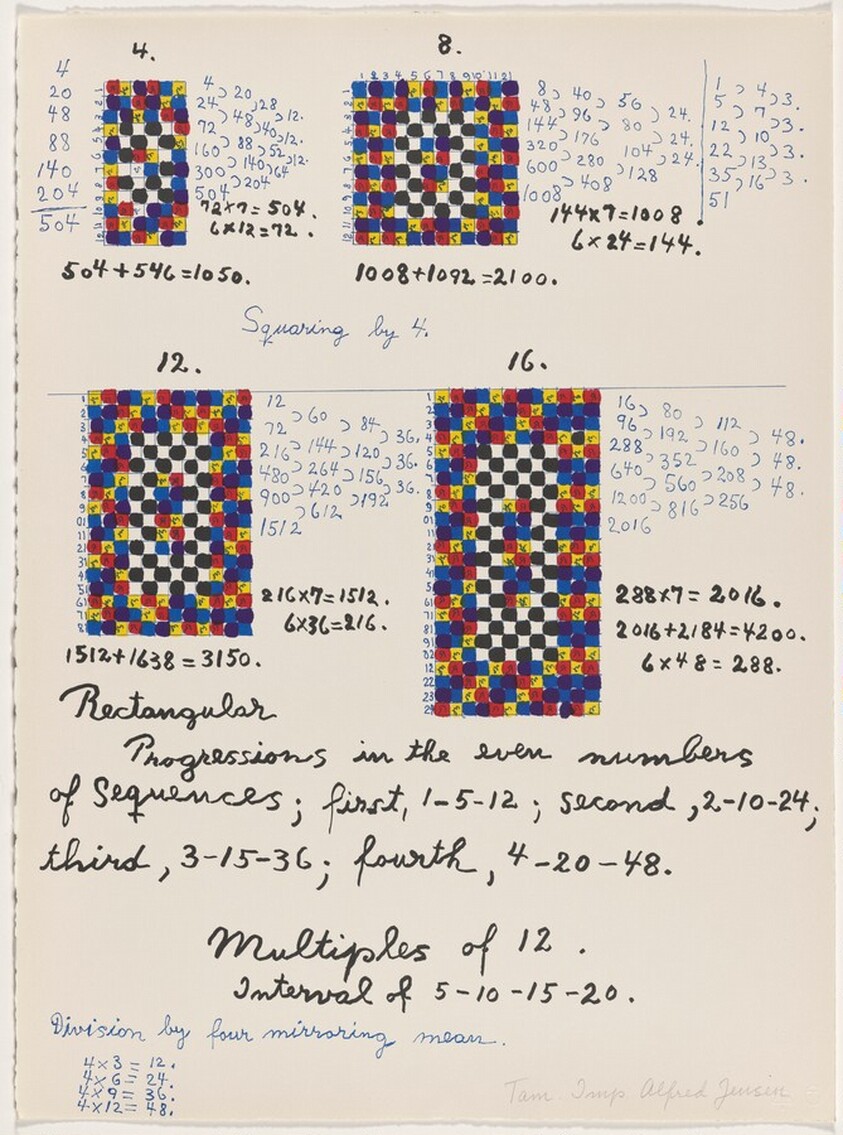 4.
8.
4
20
48
88
140
204
504
4
24
72
160
300
504
20
48
88
140
204
28
40
52
64
12.
12.
12.
72x7=504.
6x12=72.
504+546=1050.
1 2 3 4 5 6 7 8 9 10 11 12
8
48
144
320
600
1008
40
96
176
280
408
56
80
104
128
24.
24.
24.
1
5
12
22
35
51
4
7
10
13
16
3.
3.
3.
3.
144x7=1008.
6x24=144.
1008+1092=2100.
Squaring by 4.
12.
16.
12
72
216
480
900
1512
60
144
264
420
612
84
120
156
192
36.
36.
36.
216x7=1512.
6x36=216.
1512+1638=3150.
16
96
288
640
1200
2016
80
192
352
560
816
112
160
208
256
48.
48.
48.
288x7=2016.
2016+2184=4200.
6x48=288.
Rectangular
Progressions in the even numbers
of Sequences; first, 1-5-12; second, 2-10-24;
third, 3-15-36; fourth, 4-20-48.
Multiples of 12.
Interval of 5-10-15-20.
Division by four mirroring mean.
4x3=12.
4x6=24.
4x9=36.
4x12=48.
Tam. Imp. Alfred Jensen